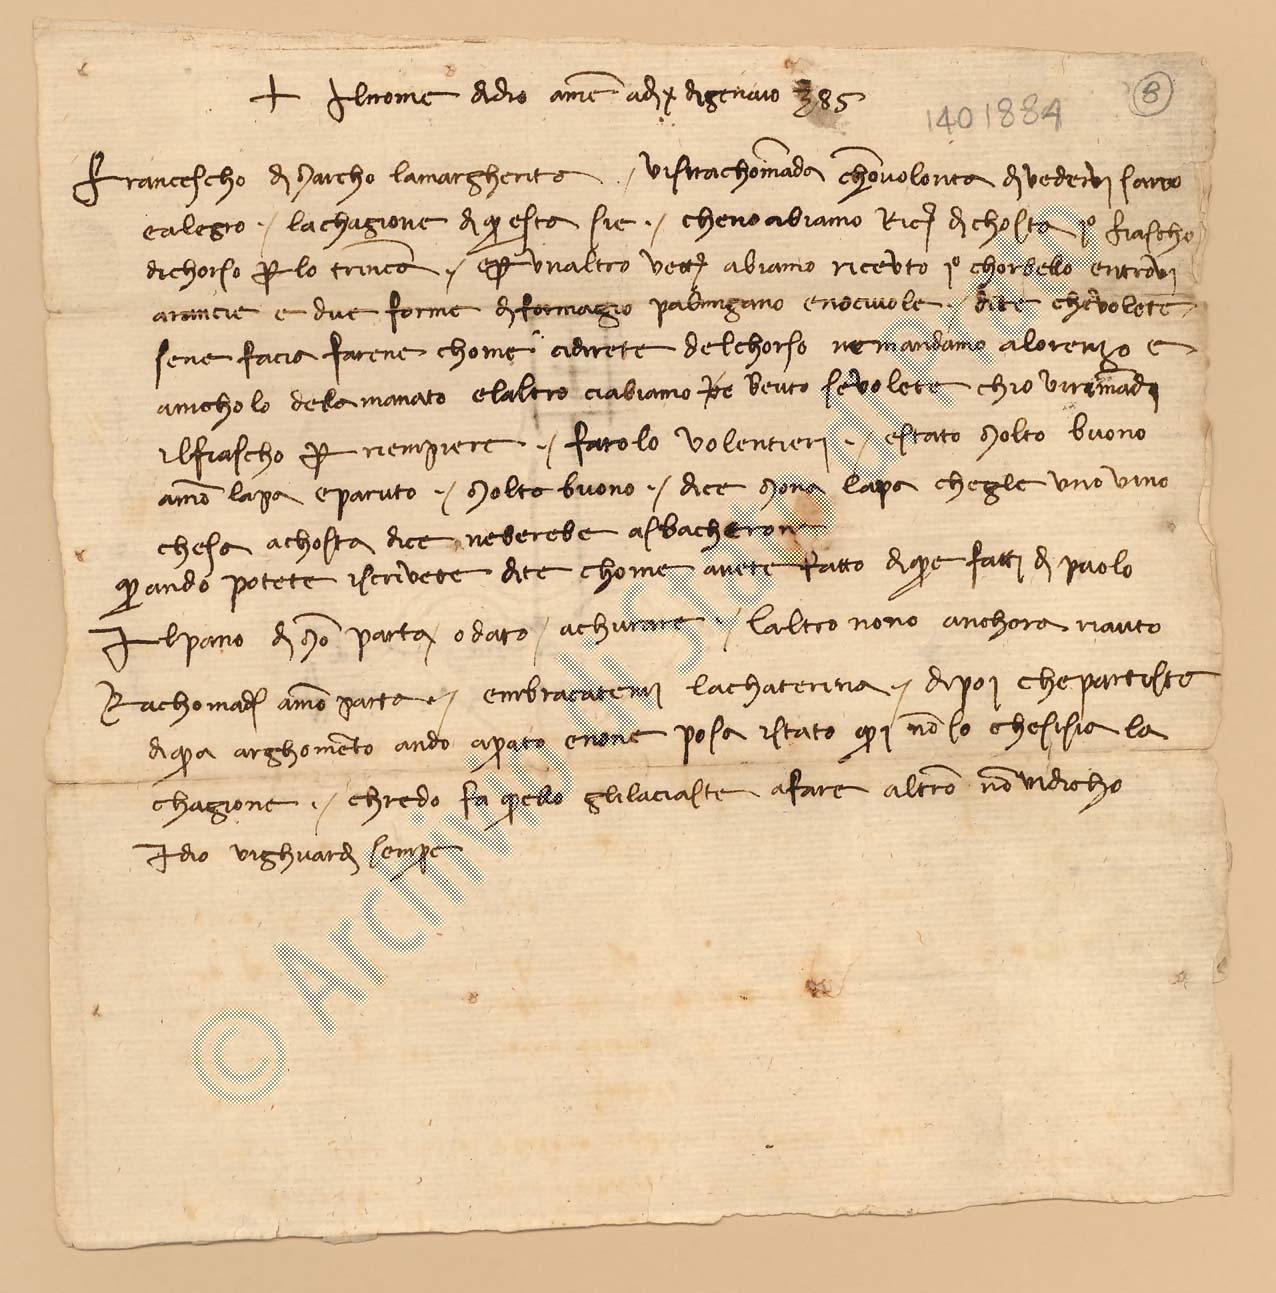 + Alnome didio ame adi x digenaio 385
1401884
8
Francescho di Marcho lamargherita / visirachomanda chovolonta divedervi sano
ealegro / lachagione diquesta sie / cheno abiamo Ric di chosta j° fiascho
dichorso per lo trinca / e per unaltro abiamo ricevto j° chorbello entrovi
arancie e due forme di formagio / dite chevolete
sene facia farene chome cidirete delchorso ne mandamo alorenzo e
anicholo delamanato elaltro ciabiamo bevto sevolete chio virimandi
ilfiascho per riempiere / farolo volentieri / estato Molto buono
amo lapa eparuto / Molto buono / dice Mona lapa chegle uno vino
chesa achosta dice neberebe asbacherone
quando potete iscrivete dite chome avete fatto dique fatti di paolo
Il pano di Mo parta / o dato / achurare / laltro nono anchora riauto
Rachomadi amo parta / embracatemi lachaterina / dipoi chepartiste
diqua arghomento ando aprato enone posa istato qui no so chesisia la
chagione / chredo fa quello glilaciaste afare altro no vidicho
Idio vighuardi sempre
© Archivio di Stato di Prato